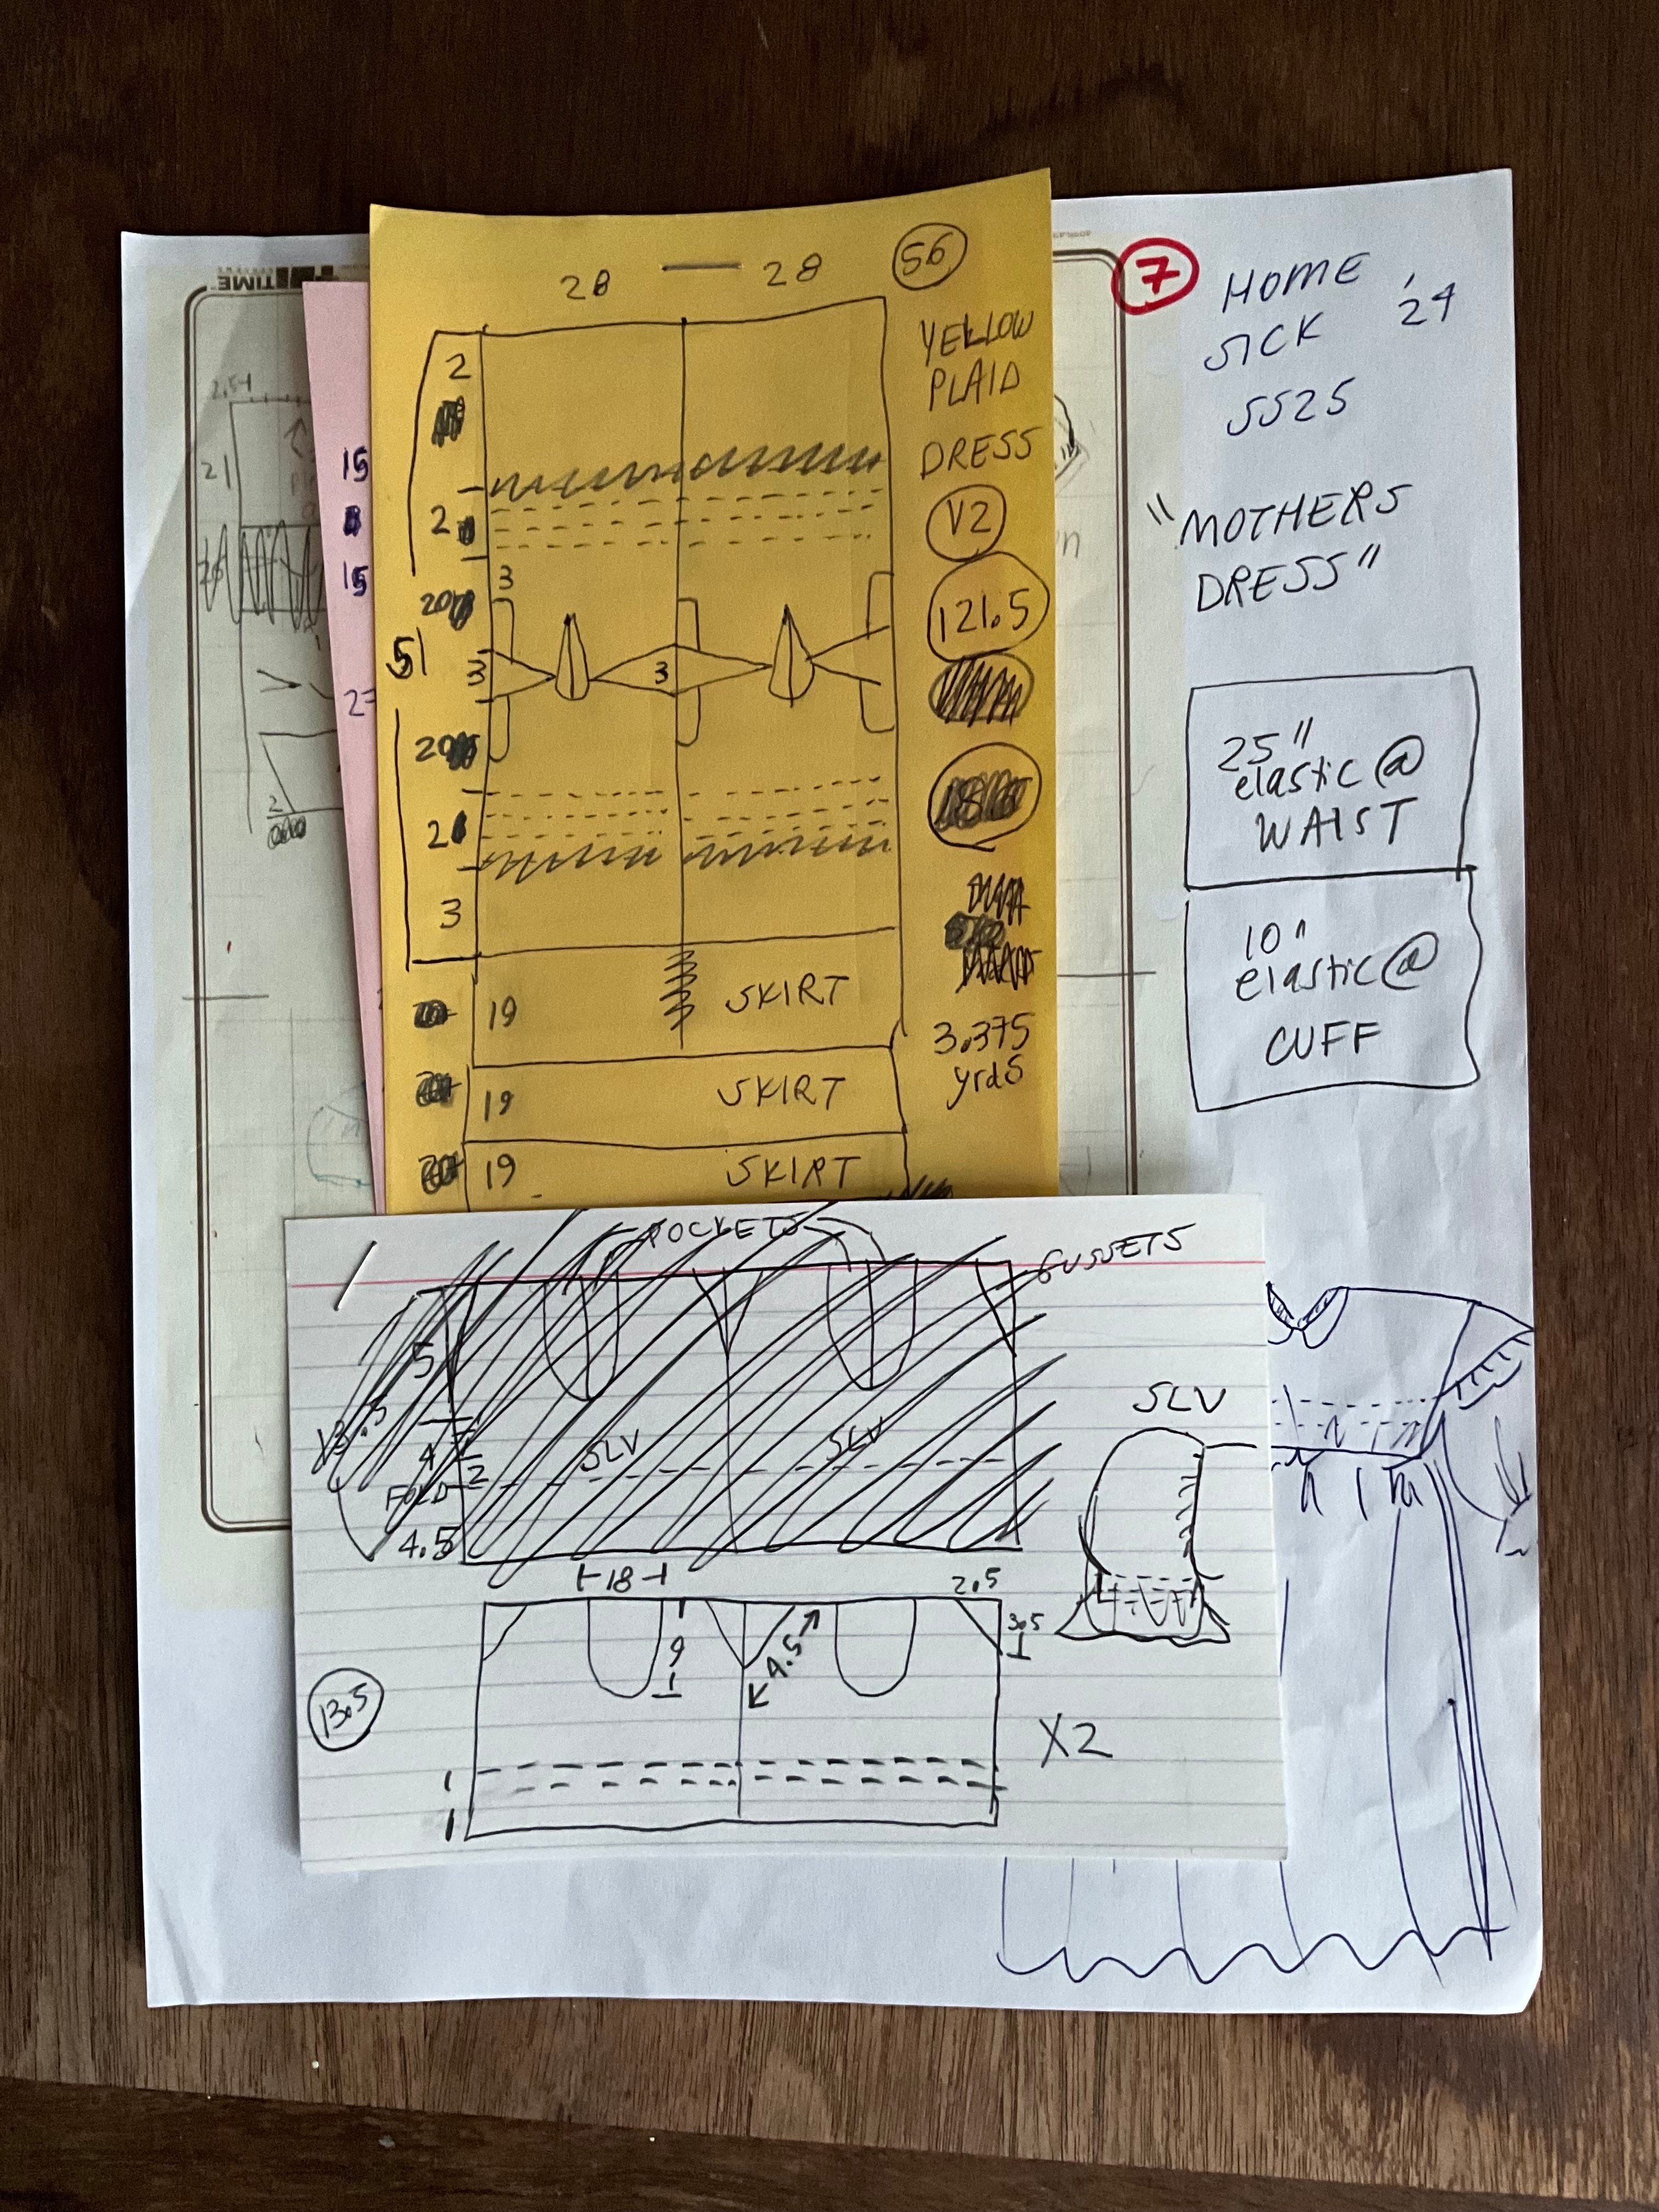 TIME
2.5
21
15
8
15
2
28 — 28
56
YELLOW
PLAID
DRESS
V2
121.5
3.375
yrds
2
2
3
20
51
3
3
20
2
3
19
SKIRT
19
SKIRT
19
SKIRT
7
HOME
SICK '24
SS25
"MOTHERS
DRESS"
25"
elastic @
WAIST
10"
elastic @
CUFF
POCKETS
GUSSETS
5
13.5
4
2
FOLD
4.5
SLV
SLV
SLV
18
2.5
3.5
9
4.5
13.5
1
1
X2